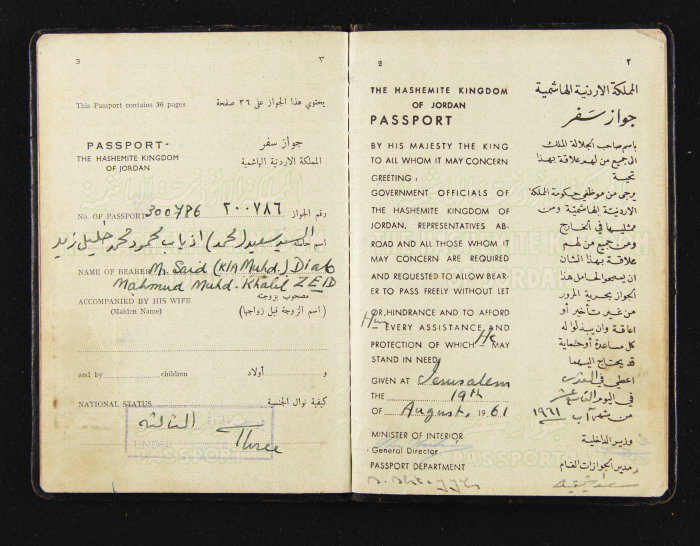 3 ٣
This Passport contains 36 pages يحتوي هذا الجواز على ٣٦ صفحة
PASSPORT- جواز سفر
THE HASHEMITE KINGDOM المملكة الاردنية الهاشمية
OF JORDAN
No. OF PASSPORT 300786 ٣٠٠٧٨٦ رقم الجواز
اسم حامله السيد سعيد (محمد) ذياب محمود محمد خليل زيد
NAME OF BEARER Mr. Said (K/A Muhd.) Diab
Mahmud Muhd. Khalil ZEID
ACCOMPANIED BY HIS WIFE مصحوب بزوجته
(Maiden Name) (اسم الزوجة قبل زواجها)
and by children و أولاد
NATIONAL STATUS كيفية نوال الجنسية
الثالثة
UNDER
Three
PASSPORT
2 ٢
THE HASHEMITE KINGDOM
OF JORDAN
PASSPORT
BY HIS MAJESTY THE KING
TO ALL WHOM IT MAY CONCERN
GREETING :
GOVERNMENT OFFICIALS OF
THE HASHEMITE KINGDOM OF
JORDAN, REPRESENTATIVES AB-
ROAD AND ALL THOSE WHOM IT
MAY CONCERN ARE REQUIRED
AND REQUESTED TO ALLOW BEAR-
ER TO PASS FREELY WITHOUT LET
OR HINDRANCE AND TO AFFORD
Him EVERY ASSISTANCE AND
PROTECTION OF WHICH He MAY
STAND IN NEED
GIVEN AT Jerusalem
THE 19th
OF August, 1961
MINISTER OF INTERIOR
General Director
PASSPORT DEPARTMENT
المملكة الاردنية الهاشمية
جواز سفر
باسم صاحب الجلالة الملك
الى جميع من لهم علاقة بهذا
تحية
يرجى من موظفي حكومة المملكة
الاردنية الهاشمية ومن
ممثليها في الخارج
ومن جميع من لهم
علاقة بهذا الشأن
ان يسمحوا لحامل هذا
الجواز بحرية المرور
من غير تأخير أو
اعاقة وان يبذلوا له
كل مساعدة أو حماية
قد يحتاج اليهما
اعطي في القدس
في اليوم التاسع عشر
من شهر آب ١٩٦١
وزير الداخلية
مدير الجوازات العام